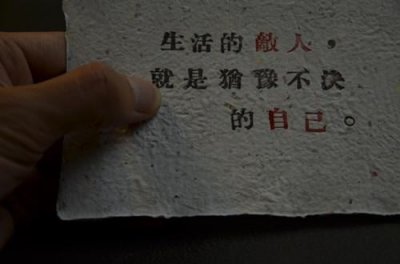 生活的敵人，
就是猶豫不決
的自己。